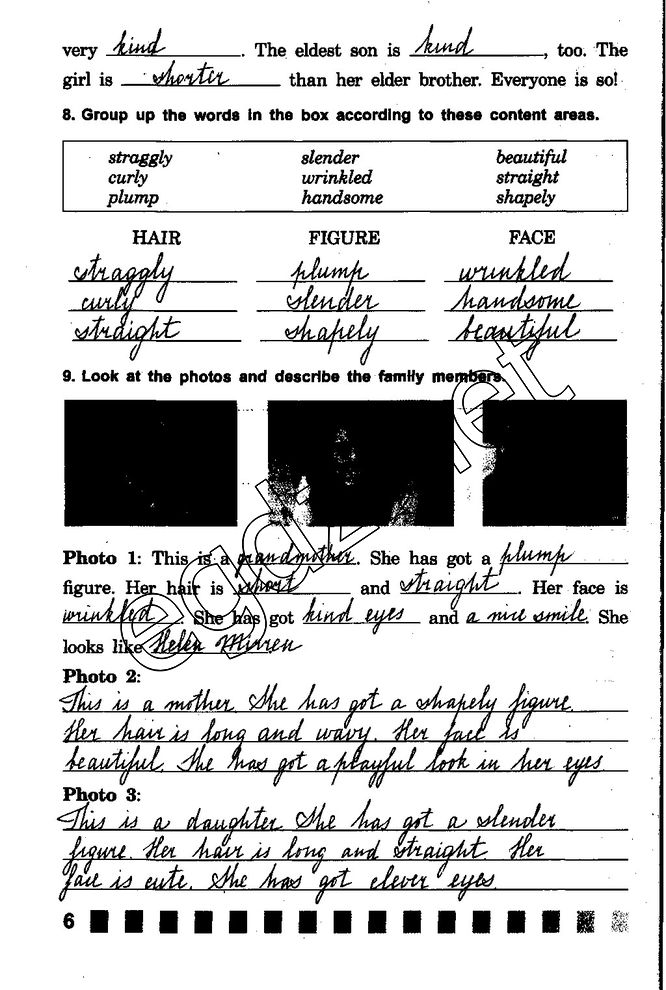 very kind. The eldest son is kind, too. The
girl is shorter than her elder brother. Everyone is so!
8. Group up the words in the box according to these content areas.
straggly slender beautiful
curly wrinkled straight
plump handsome shapely
HAIR FIGURE FACE
straggly plump wrinkled
curly slender handsome
straight shapely beautiful
9. Look at the photos and describe the family members.
Photo 1: This is a grandmother. She has got a plump
figure. Her hair is short and straight. Her face is
wrinkled. She has got kind eyes and a nice smile. She
looks like Helen Mirren
Photo 2:
This is a mother. She has got a shapely figure.
Her hair is long and wavy. Her face is
beautiful. She has got a playful look in her eyes
Photo 3:
This is a daughter. She has got a slender
figure. Her hair is long and straight. Her
face is cute. She has got clever eyes.
6